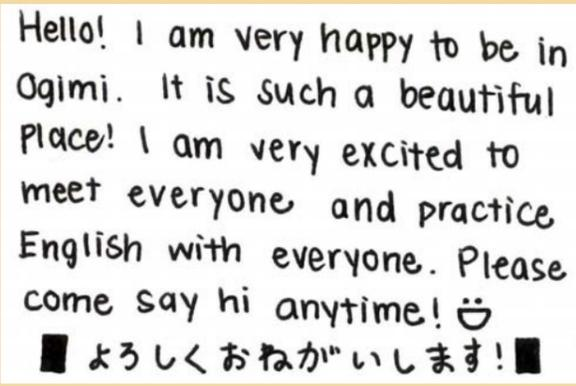 Hello! I am very happy to be in
Ogimi. It is such a beautiful
Place! I am very excited to
meet everyone and practice
English with everyone. Please
come say hi anytime! 😃
■ よろしくおねがいします! ■